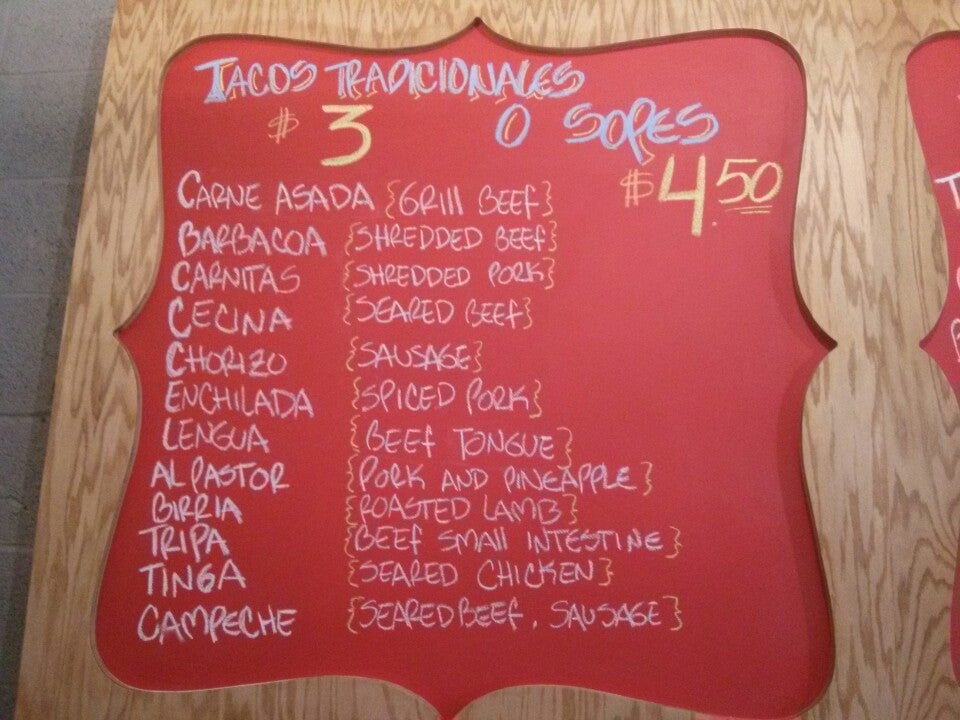 TACOS TRADICIONALES
$ 3 O SOPES
$4.50
CARNE ASADA {GRILL BEEF}
BARBACOA {SHREDDED BEEF}
CARNITAS {SHREDDED PORK}
CECINA {SEARED BEEF}
CHORIZO {SAUSAGE}
ENCHILADA {SPICED PORK}
LENGUA {BEEF TONGUE}
AL PASTOR {PORK AND PINEAPPLE}
BIRRIA {ROASTED LAMB}
TRIPA {BEEF SMALL INTESTINE}
TINGA {SEARED CHICKEN}
CAMPECHE {SEARED BEEF. SAUSAGE}